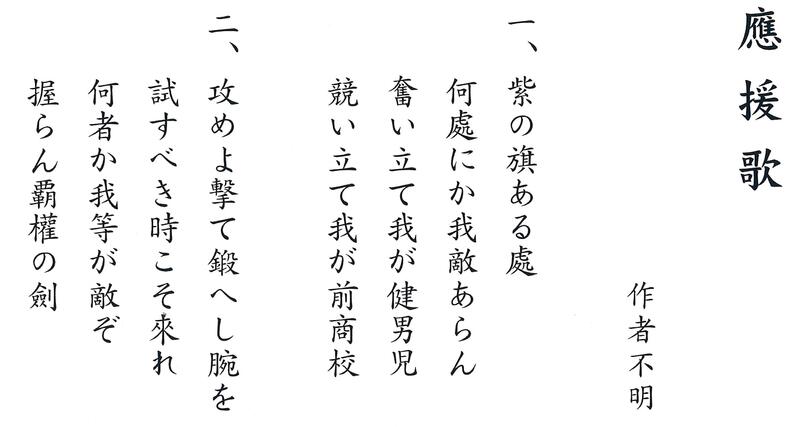 應援歌
作者不明
一、紫の旗ある處
何處にか我敵あらん
奮い立て我が健男児
競い立て我が前商校
二、攻めよ撃て鍛へし腕を
試すべき時こそ來れ
何者か我等が敵ぞ
握らん覇權の劍